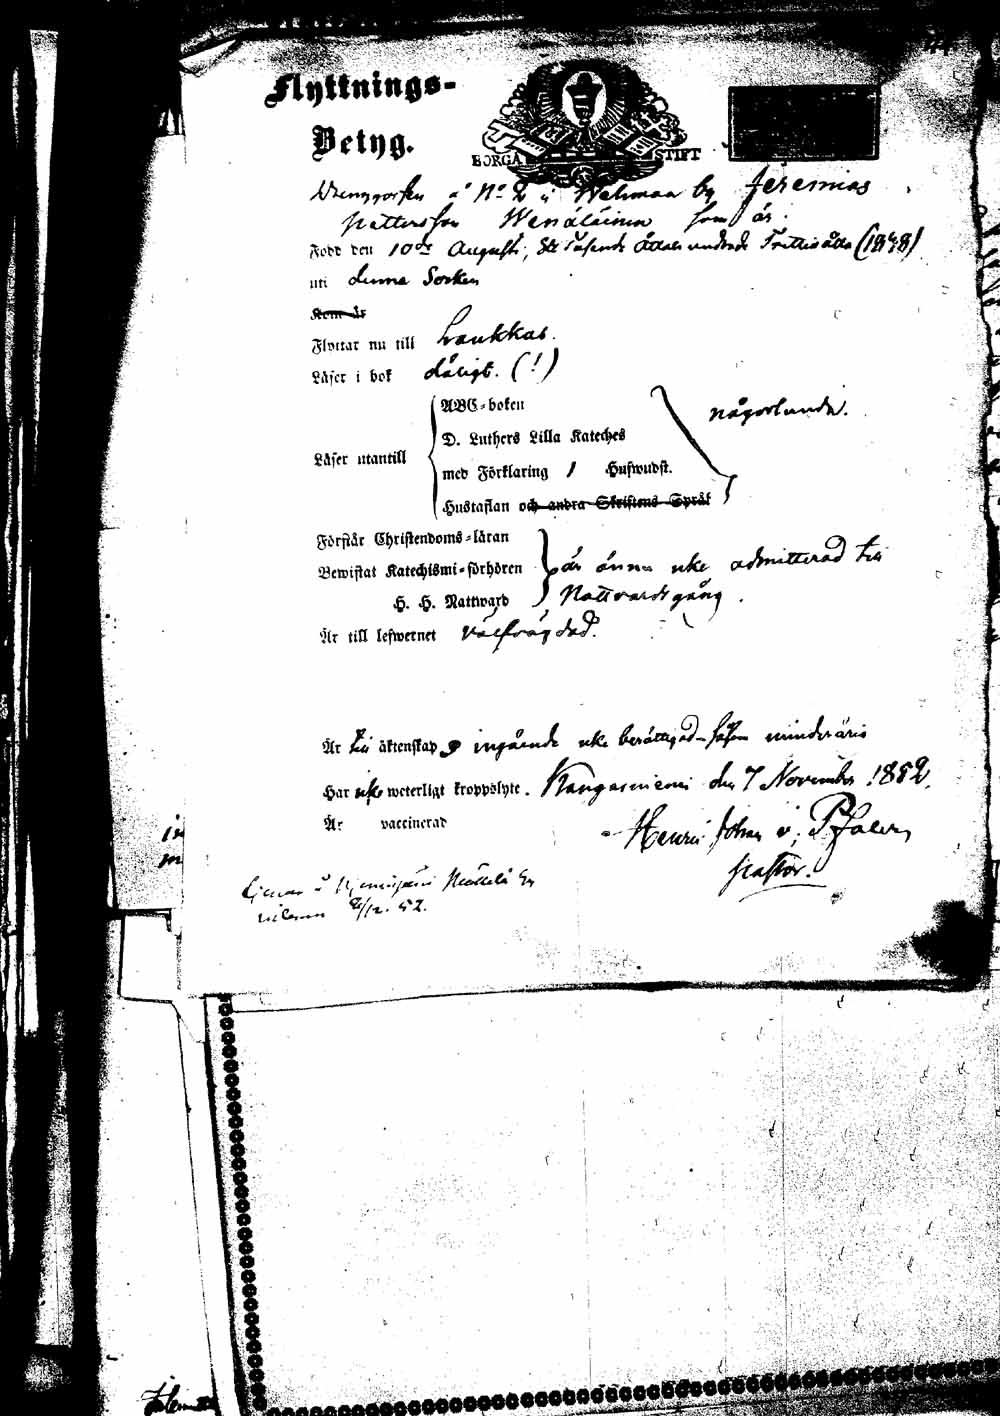 Flyttnings-
Betyg.
BORGÅ STIFT
Drenggossen å No 2 i Wehmaa by Jeremias
Pettersson Wenäläinen som är
Född den 10de Augusti, Ett Tusende Åttahundrade Trettioåtta (1838)
uti denna Socken
Kom är
Flyttar nu till Laukkas.
Läser i bok dåligt. (!)
Läser utantill
ABC-boken
D. Luthers Lilla Kateches
med Förklaring 1 Hufwudst.
Hustaflan och andra Skriftens Språk
någorlunda.
Förstår Christendoms-läran
Bewistat Katechismi-förhören
H. H. Nattward
är ännu icke admitterad till
Nattvardsgång.
Är till lefwernet välfrägdad.
Är till äktenskaps ingående icke berättigad såsom minderårig
Har icke weterligt kroppslyte. Kangasniemi den 7 November 1852.
Är vaccinerad
Henric Johan v. Pfaler
Pastor.
Tjenar å
52.